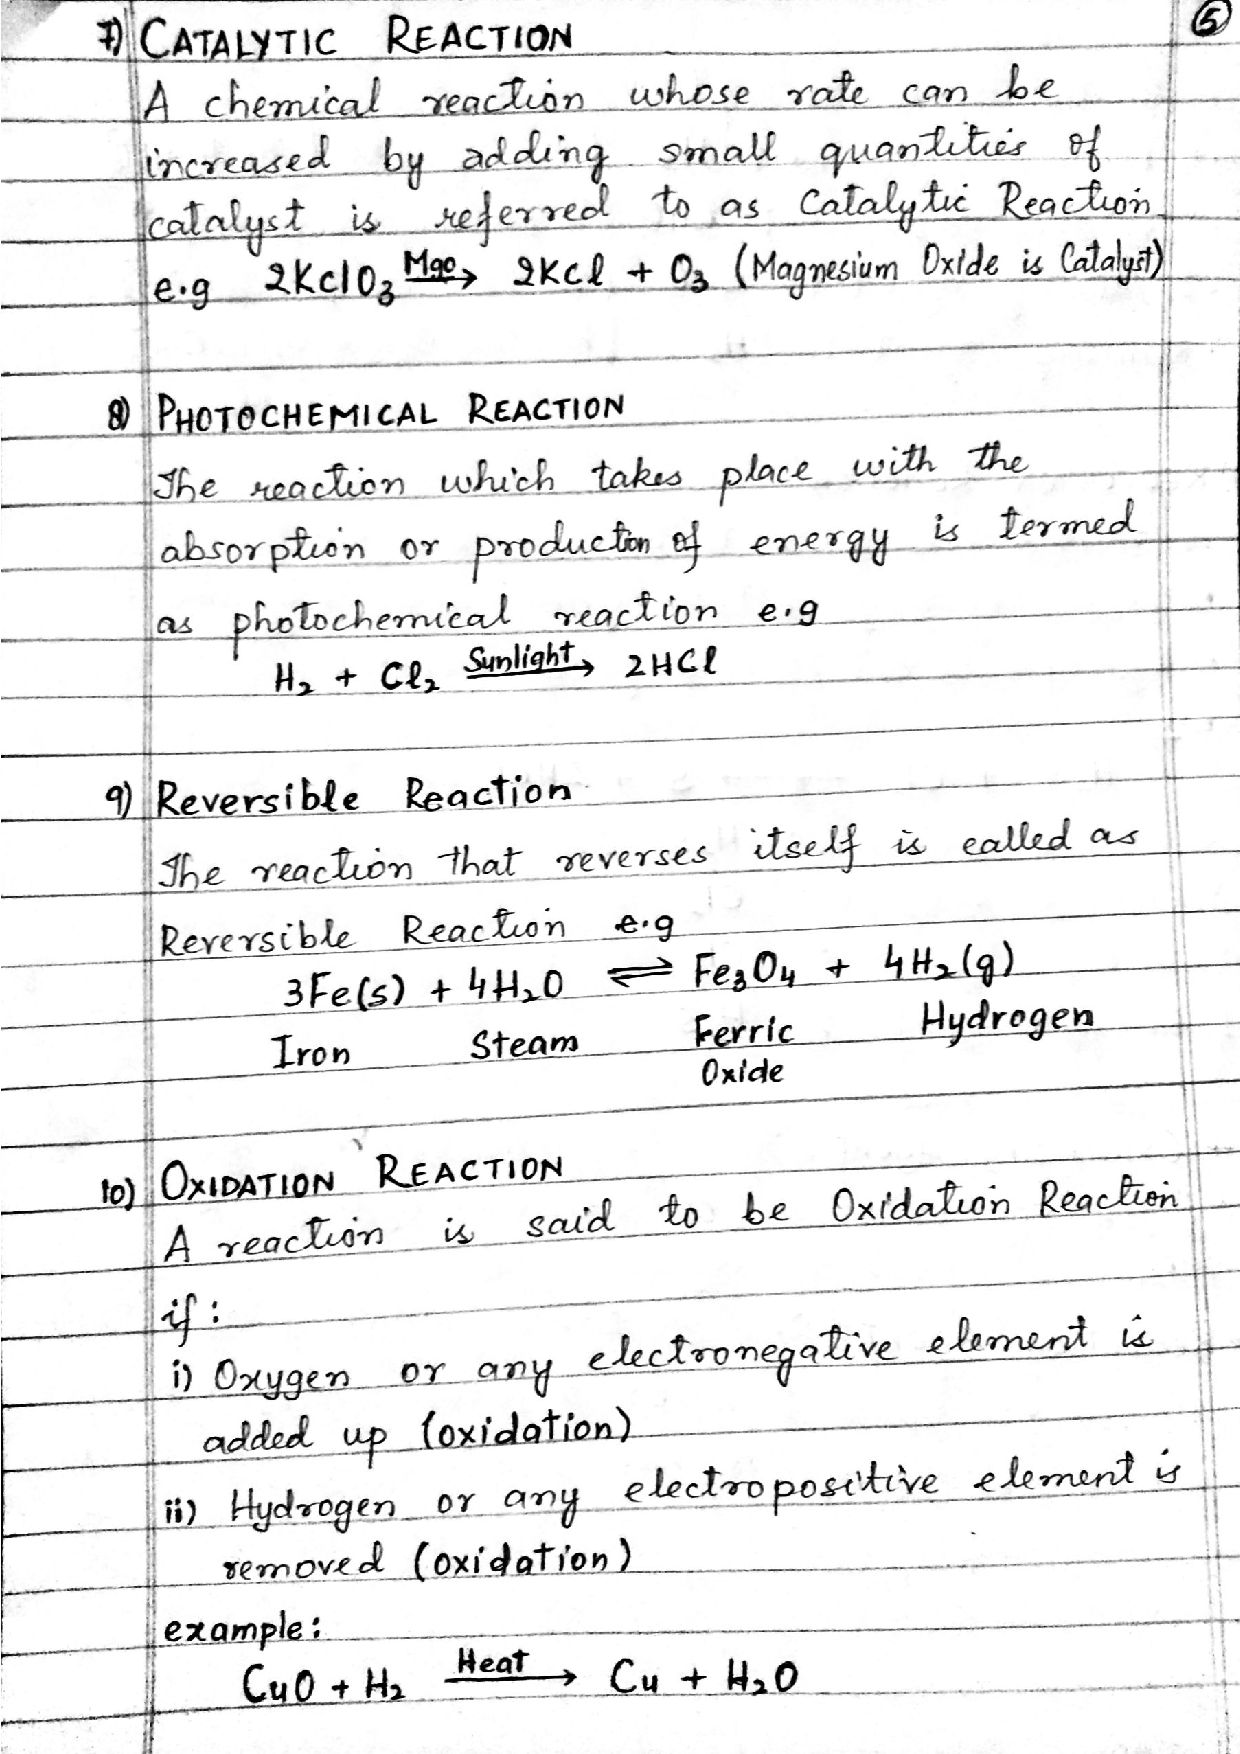 5
7) CATALYTIC REACTION
A chemical reaction whose rate can be
increased by adding small quantities of
catalyst is referred to as Catalytic Reaction
e.g 2KClO₃ MgO→ 2KCl + O₃ (Magnesium Oxide is Catalyst)
8) PHOTOCHEMICAL REACTION
The reaction which takes place with the
absorption or production of energy is termed
as photochemical reaction e.g
H₂ + Cl₂ Sunlight→ 2HCl
9) Reversible Reaction
The reaction that reverses itself is called as
Reversible Reaction e.g
3Fe(s) + 4H₂O ⇌ Fe₃O₄ + 4H₂(g)
Iron Steam Ferric Hydrogen
Oxide
10) OXIDATION REACTION
A reaction is said to be Oxidation Reaction
if :
i) Oxygen or any electronegative element is
added up (oxidation)
ii) Hydrogen or any electropositive element is
removed (oxidation)
example:
CuO + H₂ Heat→ Cu + H₂O